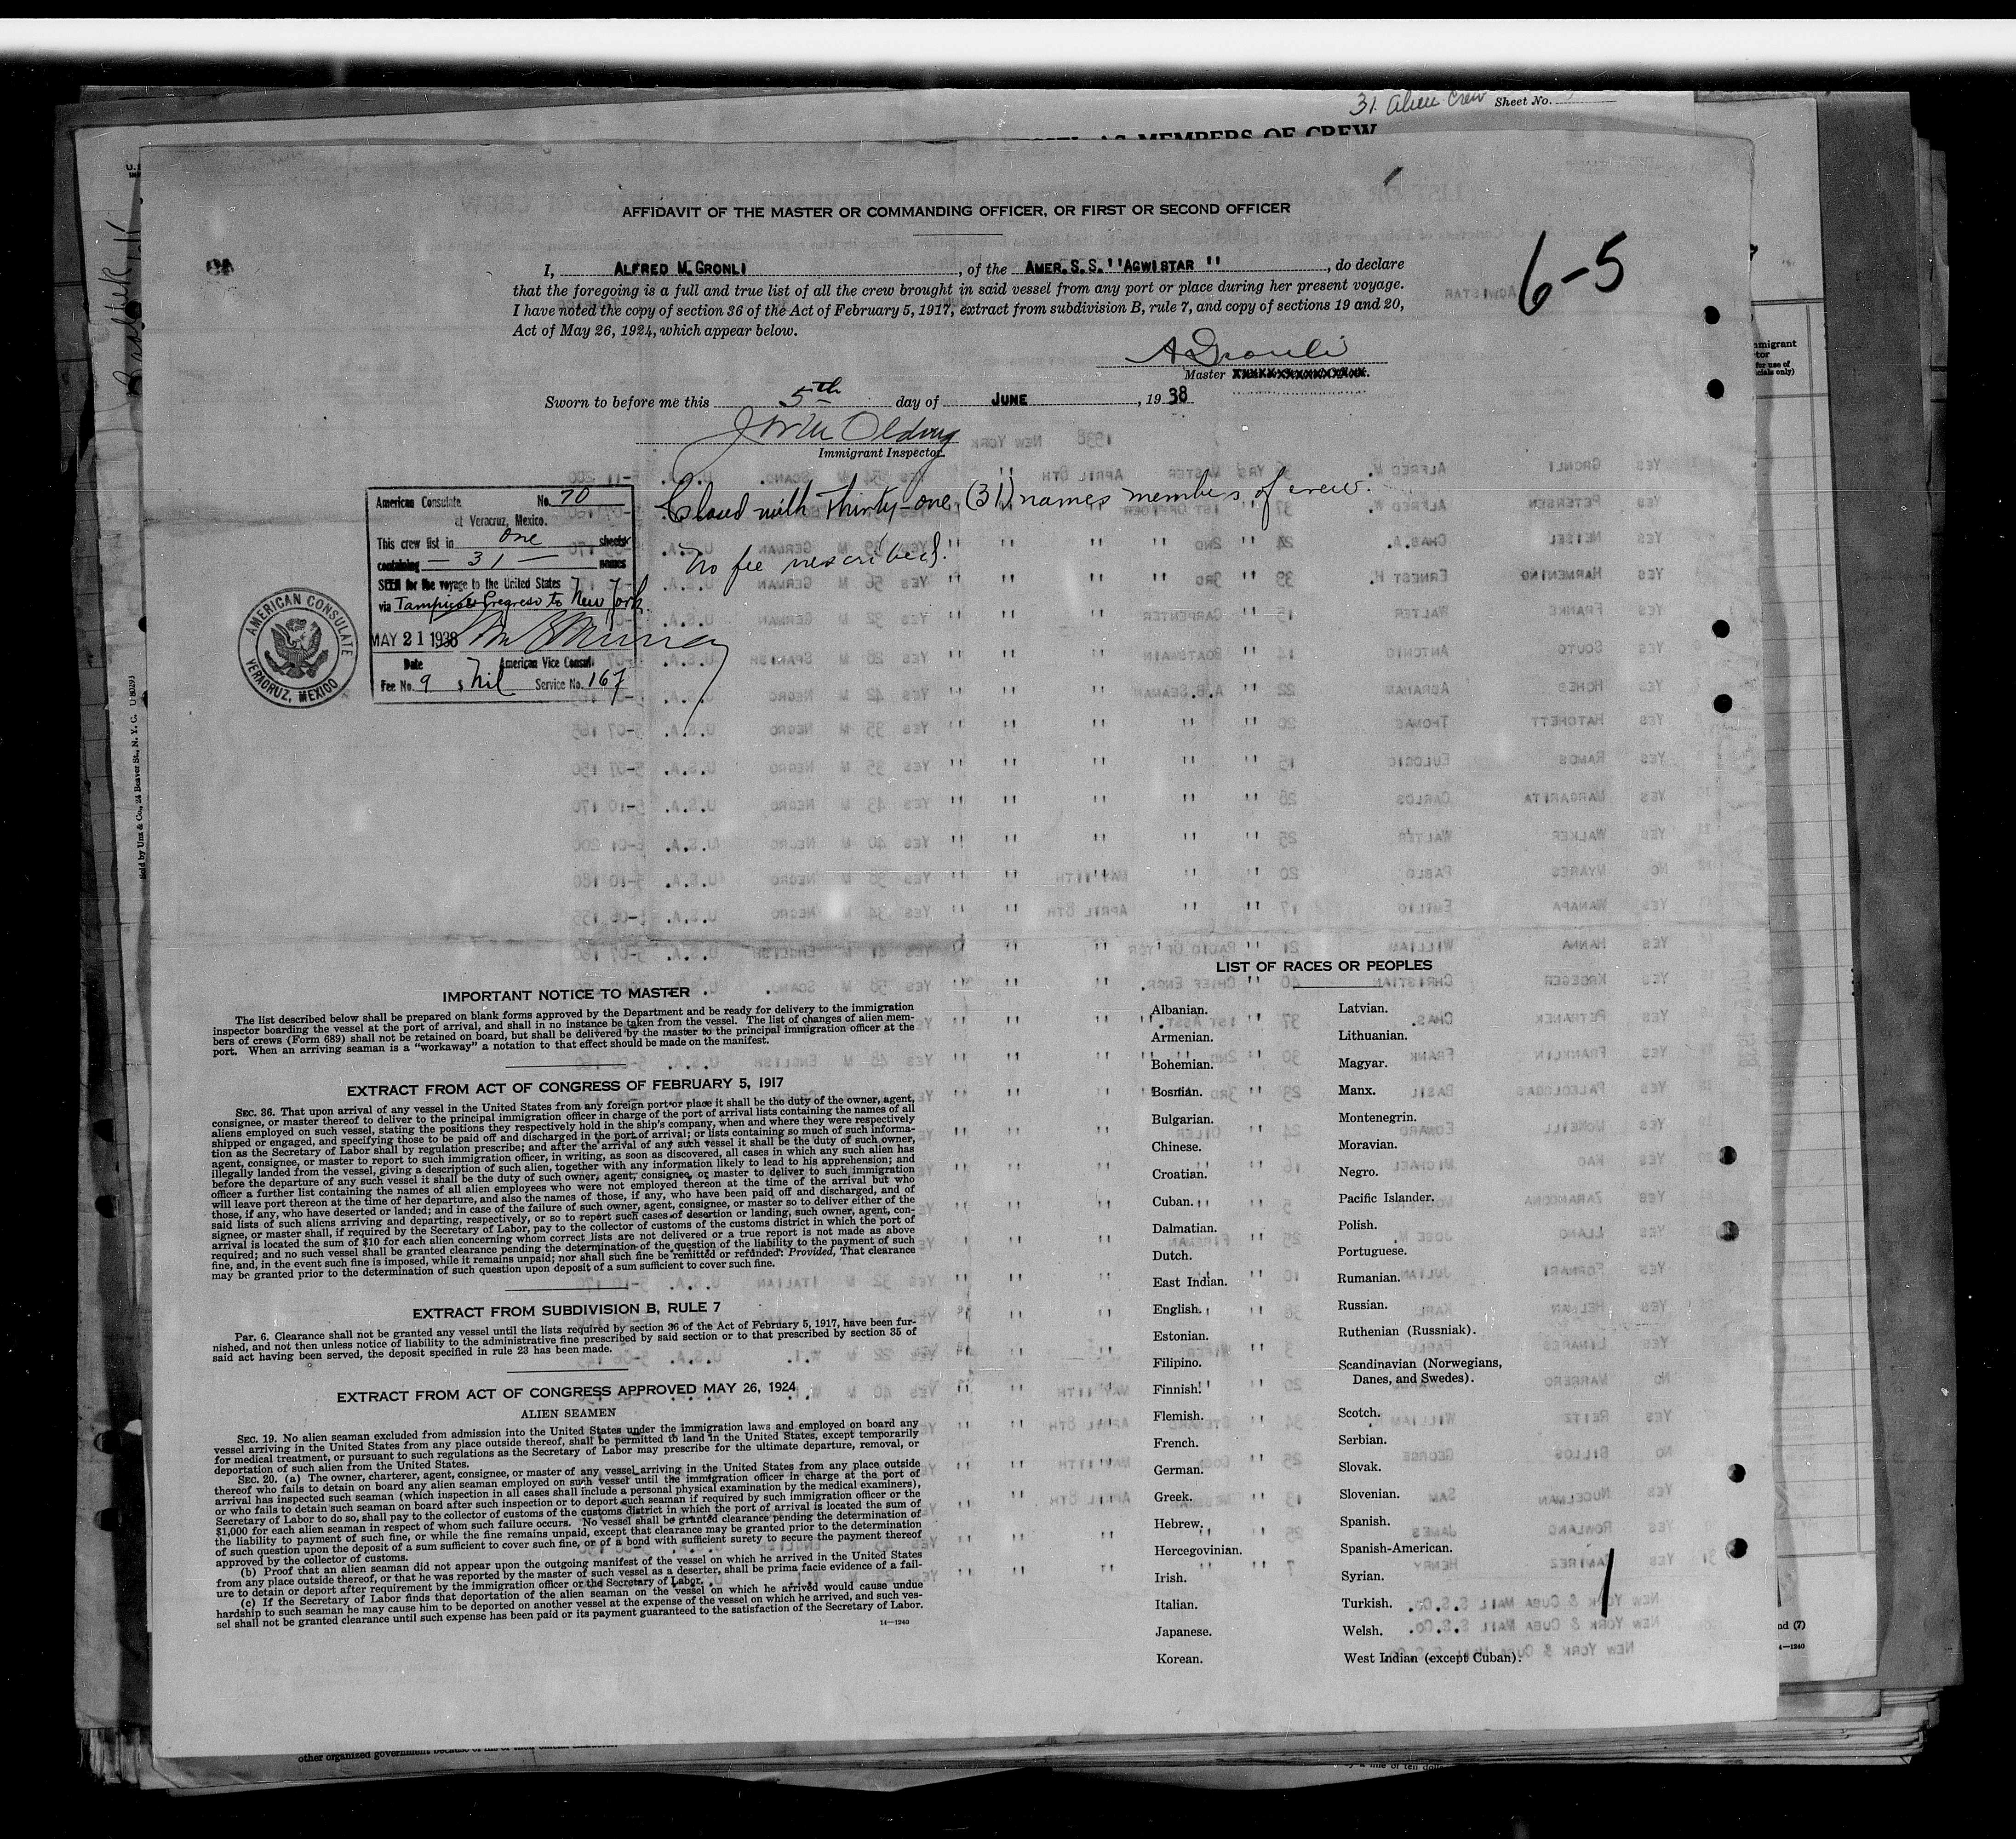 31 alien crew Sheet No.
AS MEMBERS OF CREW
AFFIDAVIT OF THE MASTER OR COMMANDING OFFICER, OR FIRST OR SECOND OFFICER
6-5
I, ALFRED M. GRONLI, of the AMER. S. S. "AGWISTAR", do declare
that the foregoing is a full and true list of all the crew brought in said vessel from any port or place during her present voyage.
I have noted the copy of section 36 of the Act of February 5, 1917, extract from subdivision B, rule 7, and copy of sections 19 and 20,
Act of May 26, 1924, which appear below.
A Gronli
Master xxxxxxxxxxxxxxxx.
Sworn to before me this 5th day of JUNE, 1938
Immigrant Inspector.
Closed with thirty-one (31) names members of crew.
No fee prescribed.
American Consulate No. 70
at Veracruz, Mexico.
This crew list in one sheets
containing - 31 - names
SEEN for the voyage to the United States
via Tampico Progreso to New York
MAY 21 1938
Date American Vice Consul
Fee No. 9 $ nil Service No. 167
AMERICAN CONSULATE
VERACRUZ, MEXICO
Sold by Unz & Co., 24 Beaver St., N. Y. C.
IMPORTANT NOTICE TO MASTER
The list described below shall be prepared on blank forms approved by the Department and be ready for delivery to the immigration
inspector boarding the vessel at the port of arrival, and shall in no instance be taken from the vessel. The list of changes of alien mem-
bers of crews (Form 689) shall not be retained on board, but shall be delivered by the master to the principal immigration officer at the
port. When an arriving seaman is a "workaway" a notation to that effect should be made on the manifest.
EXTRACT FROM ACT OF CONGRESS OF FEBRUARY 5, 1917
SEC. 36. That upon arrival of any vessel in the United States from any foreign port or place it shall be the duty of the owner, agent,
consignee, or master thereof to deliver to the principal immigration officer in charge of the port of arrival lists containing the names of all
aliens employed on such vessel, stating the positions they respectively hold in the ship's company, when and where they were respectively
shipped or engaged, and specifying those to be paid off and discharged in the port of arrival; or lists containing so much of such informa-
tion as the Secretary of Labor shall by regulation prescribe; and after the arrival of any such vessel it shall be the duty of such owner,
agent, consignee, or master to report to such immigration officer, in writing, as soon as discovered, all cases in which any such alien has
illegally landed from the vessel, giving a description of such alien, together with any information likely to lead to his apprehension; and
before the departure of any such vessel it shall be the duty of such owner, agent, consignee, or master to deliver to such immigration
officer a further list containing the names of all alien employees who were not employed thereon at the time of the arrival but who
will leave port thereon at the time of her departure, and also the names of those, if any, who have been paid off and discharged, and of
those, if any, who have deserted or landed; and in case of the failure of such owner, agent, consignee, or master so to deliver either of the
said lists of such aliens arriving and departing, respectively, or so to report such cases of desertion or landing, such owner, agent, con-
signee, or master shall, if required by the Secretary of Labor, pay to the collector of customs of the customs district in which the port of
arrival is located the sum of $10 for each alien concerning whom correct lists are not delivered or a true report is not made as above
required; and no such vessel shall be granted clearance pending the determination of the question of the liability to the payment of such
fine, and, in the event such fine is imposed, while it remains unpaid; nor shall such fine be remitted or refunded: Provided, That clearance
may be granted prior to the determination of such question upon deposit of a sum sufficient to cover such fine.
EXTRACT FROM SUBDIVISION B, RULE 7
Par. 6. Clearance shall not be granted any vessel until the lists required by section 36 of the Act of February 5, 1917, have been fur-
nished, and not then unless notice of liability to the administrative fine prescribed by said section or to that prescribed by section 35 of
said act having been served, the deposit specified in rule 23 has been made.
EXTRACT FROM ACT OF CONGRESS APPROVED MAY 26, 1924
ALIEN SEAMEN
SEC. 19. No alien seaman excluded from admission into the United States under the immigration laws and employed on board any
vessel arriving in the United States from any place outside thereof, shall be permitted to land in the United States, except temporarily
for medical treatment, or pursuant to such regulations as the Secretary of Labor may prescribe for the ultimate departure, removal, or
deportation of such alien from the United States.
SEC. 20. (a) The owner, charterer, agent, consignee, or master of any vessel arriving in the United States from any place outside
thereof who fails to detain on board any alien seaman employed on such vessel until the immigration officer in charge at the port of
arrival has inspected such seaman (which inspection in all cases shall include a personal physical examination by the medical examiners),
or who fails to detain such seaman on board after such inspection or to deport such seaman if required by such immigration officer or the
Secretary of Labor to do so, shall pay to the collector of customs of the customs district in which the port of arrival is located the sum of
$1,000 for each alien seaman in respect of whom such failure occurs. No vessel shall be granted clearance pending the determination of
the liability to payment of such fine, or while the fine remains unpaid, except that clearance may be granted prior to the determination
of such question upon the deposit of a sum sufficient to cover such fine, or of a bond with sufficient surety to secure the payment thereof
approved by the collector of customs.
(b) Proof that an alien seaman did not appear upon the outgoing manifest of the vessel on which he arrived in the United States
from any place outside thereof, or that he was reported by the master of such vessel as a deserter, shall be prima facie evidence of a fail-
ure to detain or deport after requirement by the immigration officer or the Secretary of Labor.
(c) If the Secretary of Labor finds that deportation of the alien seaman on the vessel on which he arrived would cause undue
hardship to such seaman he may cause him to be deported on another vessel at the expense of the vessel on which he arrived, and such ves-
sel shall not be granted clearance until such expense has been paid or its payment guaranteed to the satisfaction of the Secretary of Labor.
14—1240
LIST OF RACES OR PEOPLES
Albanian.
Armenian.
Bohemian.
Bosnian.
Bulgarian.
Chinese.
Croatian.
Cuban.
Dalmatian.
Dutch.
East Indian.
English.
Estonian.
Filipino.
Finnish.
Flemish.
French.
German.
Greek.
Hebrew.
Hercegovinian.
Irish.
Italian.
Japanese.
Korean.
Latvian.
Lithuanian.
Magyar.
Manx.
Montenegrin.
Moravian.
Negro.
Pacific Islander.
Polish.
Portuguese.
Rumanian.
Russian.
Ruthenian (Russniak).
Scandinavian (Norwegians,
Danes, and Swedes).
Scotch.
Serbian.
Slovak.
Slovenian.
Spanish.
Spanish-American.
Syrian.
Turkish.
Welsh.
West Indian (except Cuban).
1
other organized government because of